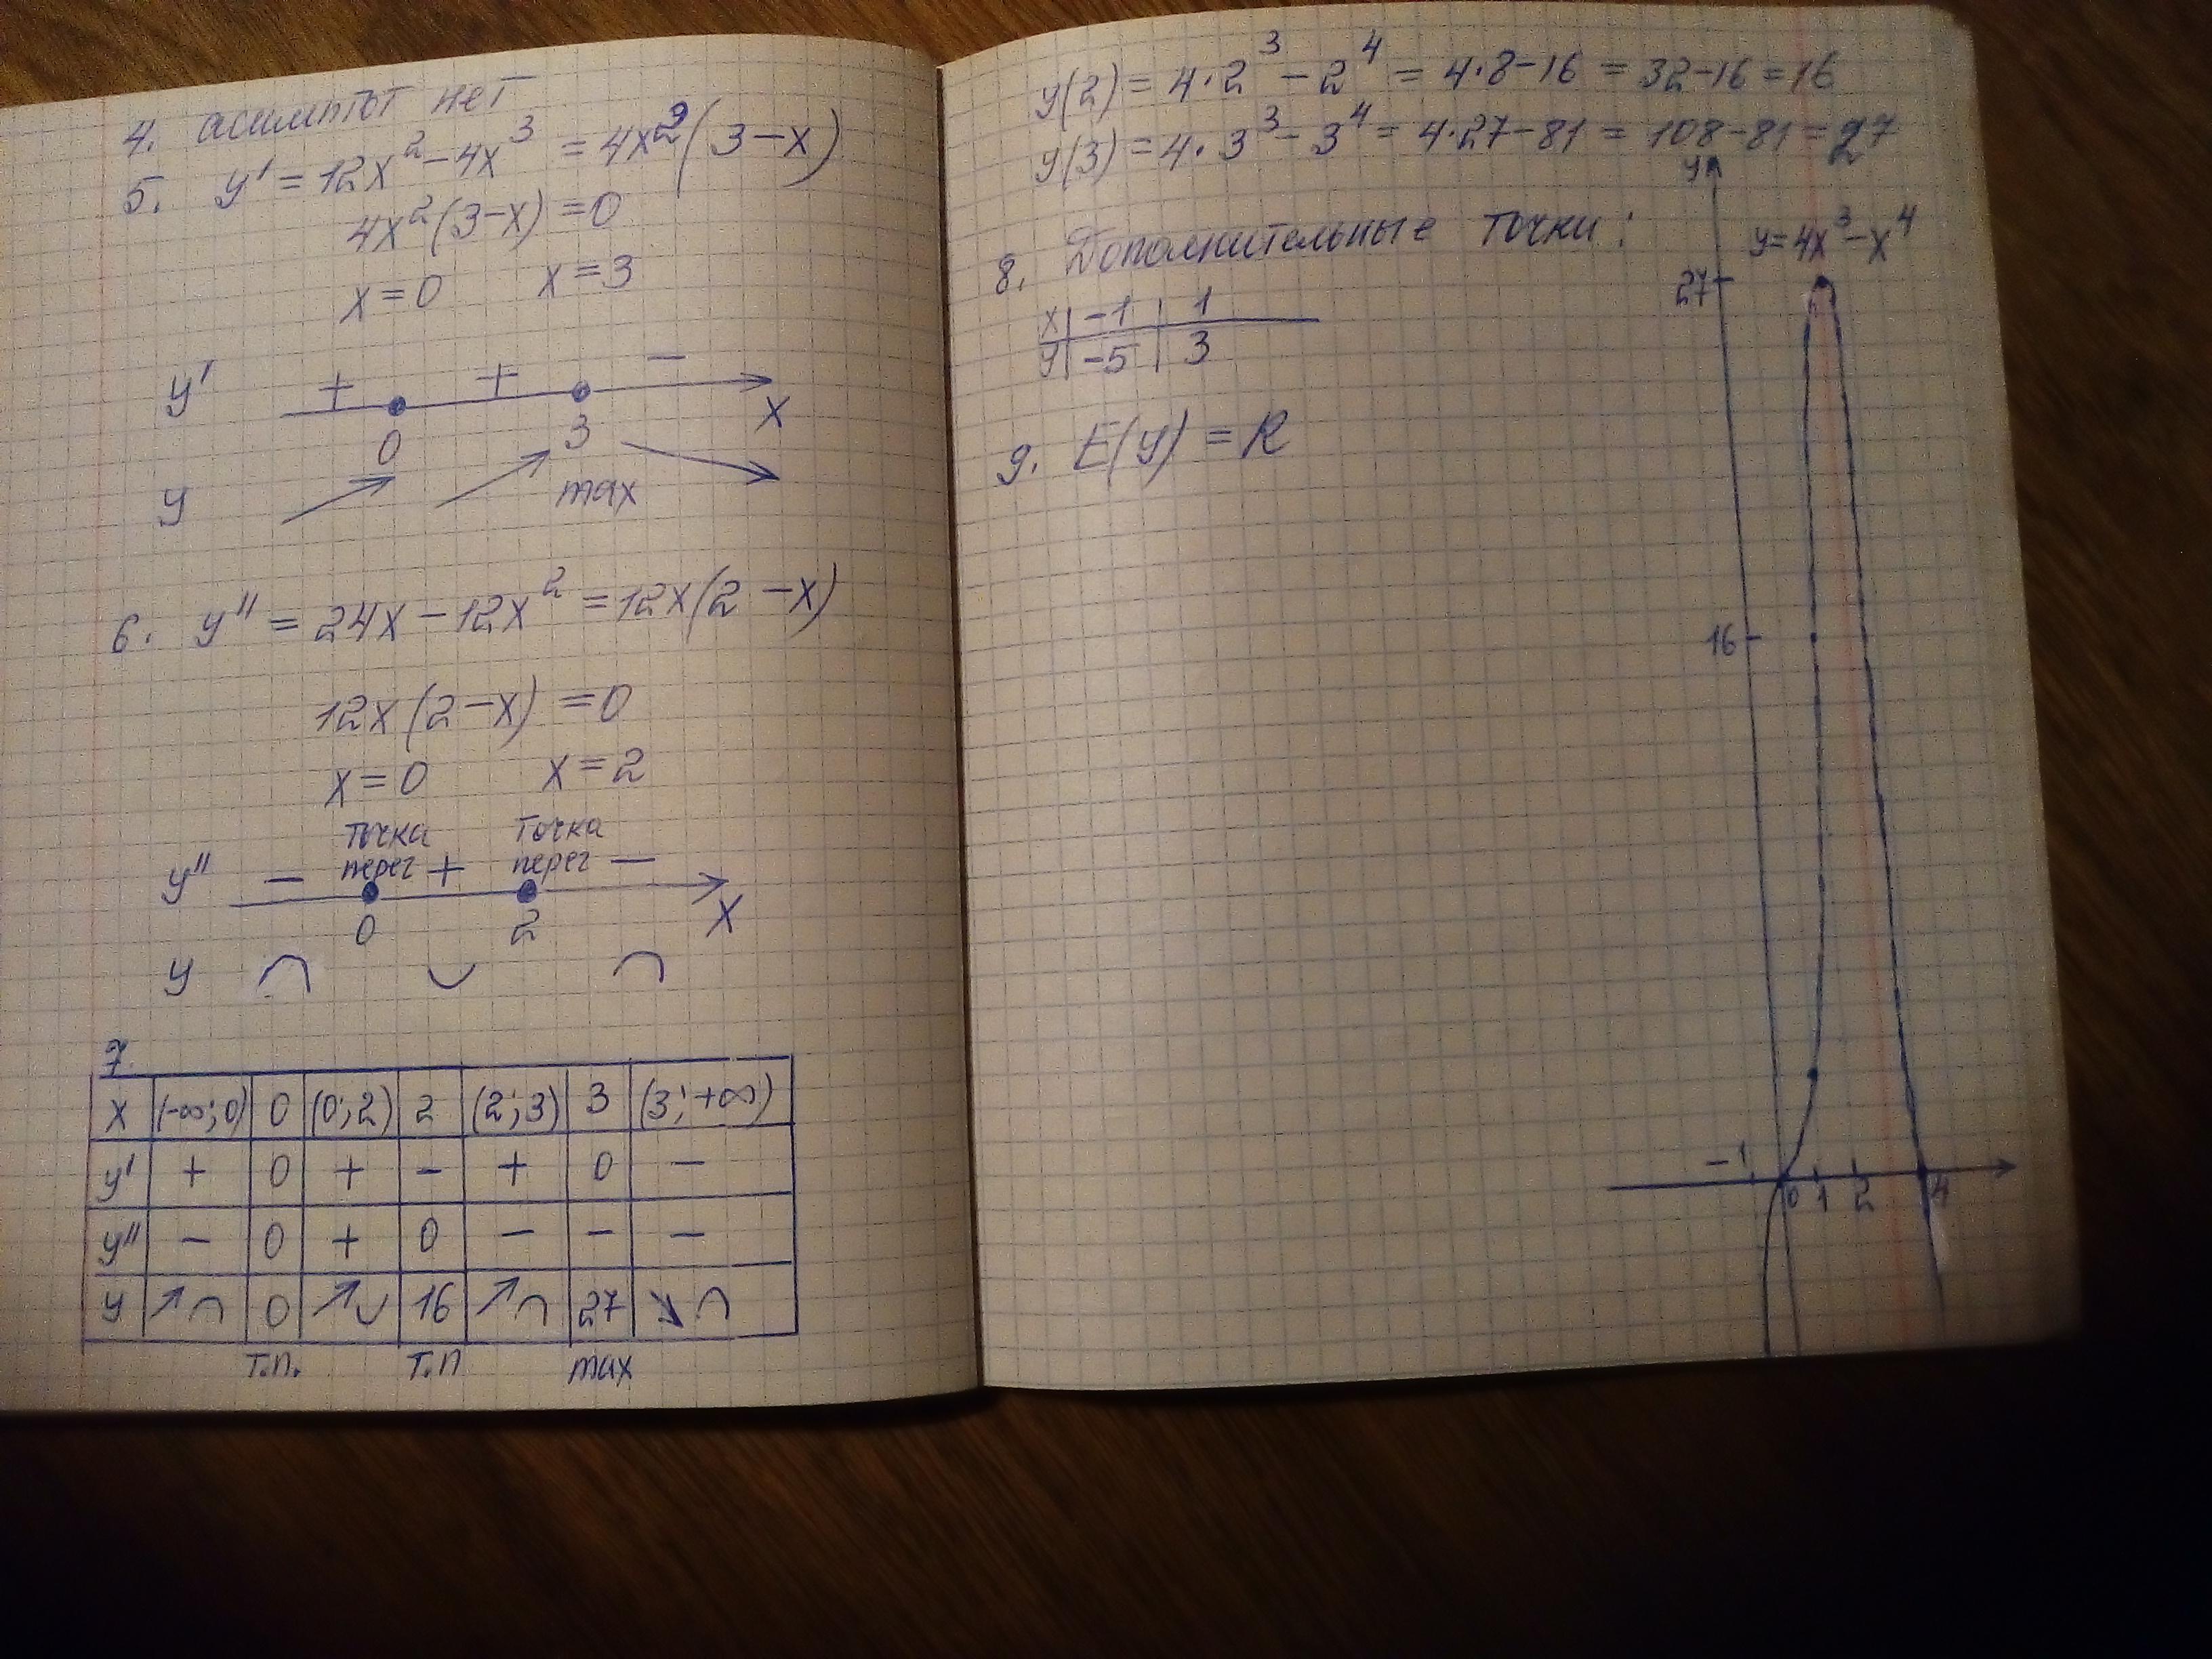 4. асимптот нет
5. y' = 12x² - 4x³ = 4x²(3-x)
4x²(3-x) = 0
x=0 x=3
y' + + -
0 3 x
y max
6. y'' = 24x - 12x² = 12x(2-x)
12x(2-x) = 0
x=0 x=2
точка точка
y'' - перег + перег -
0 2 x
y ∩ ∪ ∩
7.
x (-∞;0) 0 (0;2) 2 (2;3) 3 (3;+∞)
y' + 0 + - + 0 -
y'' - 0 + 0 - - -
y ↗∩ 0 ↗∪ 16 ↗∩ 27 ↘∩
т.п. т.п max
y(2) = 4·2³ - 2⁴ = 4·8-16 = 32-16=16
y(3) = 4·3³ - 3⁴ = 4·27-81 = 108-81=27
8. Дополнительные точки:
x -1 1
y -5 3
9. E(y) = R
y
y=4x³-x⁴
27
16
-1 0 1 2 4